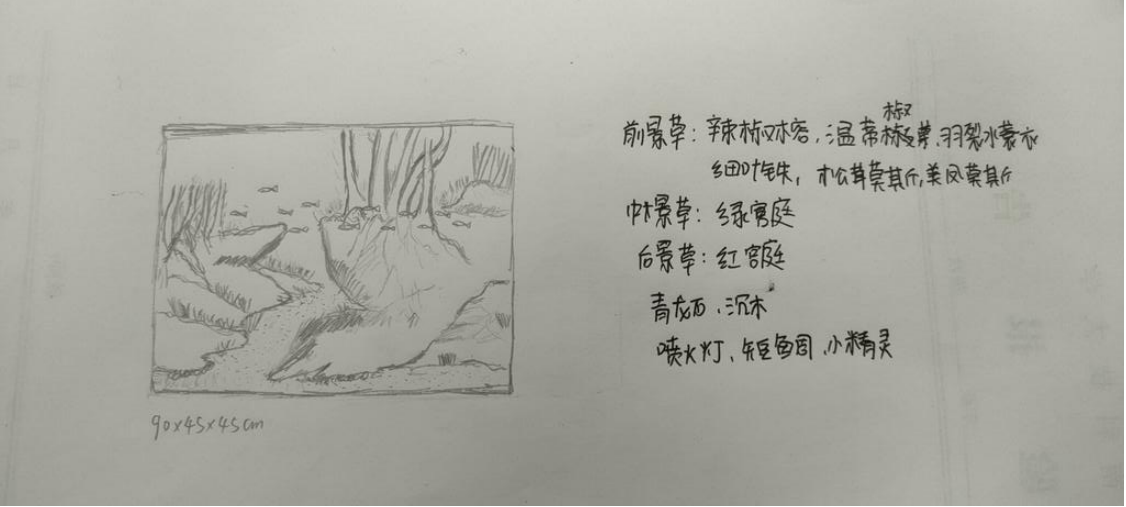 前景草：辣椒榕，温蒂椒草，羽裂水蓑衣
细叶铁，松茸莫斯，美凤莫斯
中景草：绿宫庭
后景草：红宫庭
青龙石、沉木
喷火灯、短鱼、小精灵
90x45x45cm